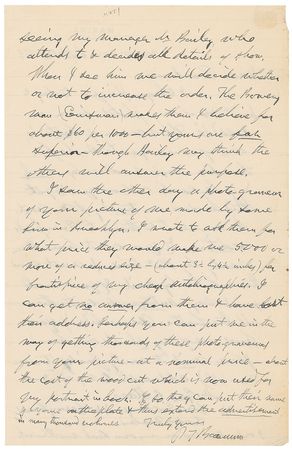 seeing my manager Mr Bailey who
attends to & decides all details of show.
When I see him we will decide whether
or not to increase the order. The Bowery
man (Eisenmann) makes them I believe for
about $60 per 1000 — but yours are far
superior — though Bailey may think the
others will answer the purpose.
I saw the other day a photo-gravure
of your picture of me made by some
firm in Brooklyn. I wrote to ask them for
what price they would make me 5000 or
more of a reduced size — (about 3½ by 4½ inches) for
frontispiece of my cheap autobiographies. I
can get no answer from them & have lost
their address. Perhaps you can put me in the
way of getting thousands of these photogravures
from your picture — at a nominal price — about
the cost of the wood cut which is now used for
my portrait in book. If so they can put their name
& yours on the plate & thus extend the advertisement
in many thousand directions. Truly yours
P. T. Barnum